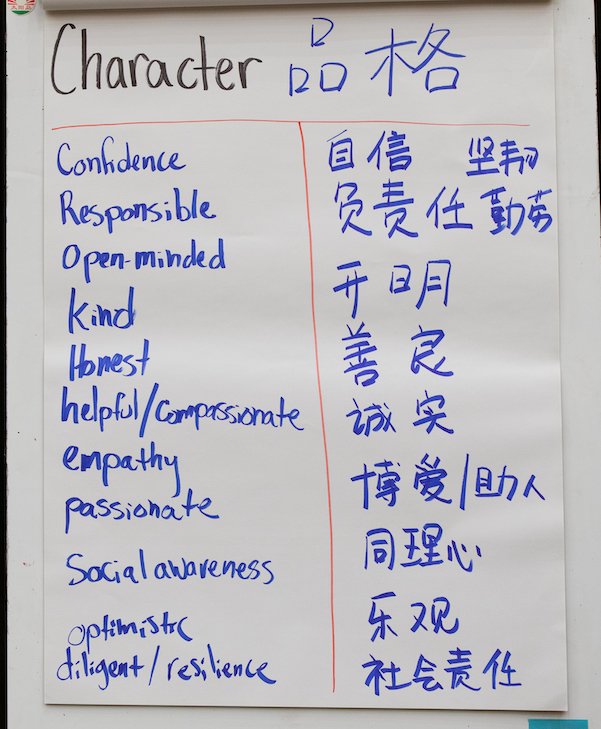 Character 品格
Confidence
Responsible
Open-minded
Kind
Honest
helpful/compassionate
empathy
passionate
Social awareness
optimistc
diligent/resilience
自信 坚韧
负责任 勤劳
开明
善良
诚实
博爱/助人
同理心
乐观
社会责任